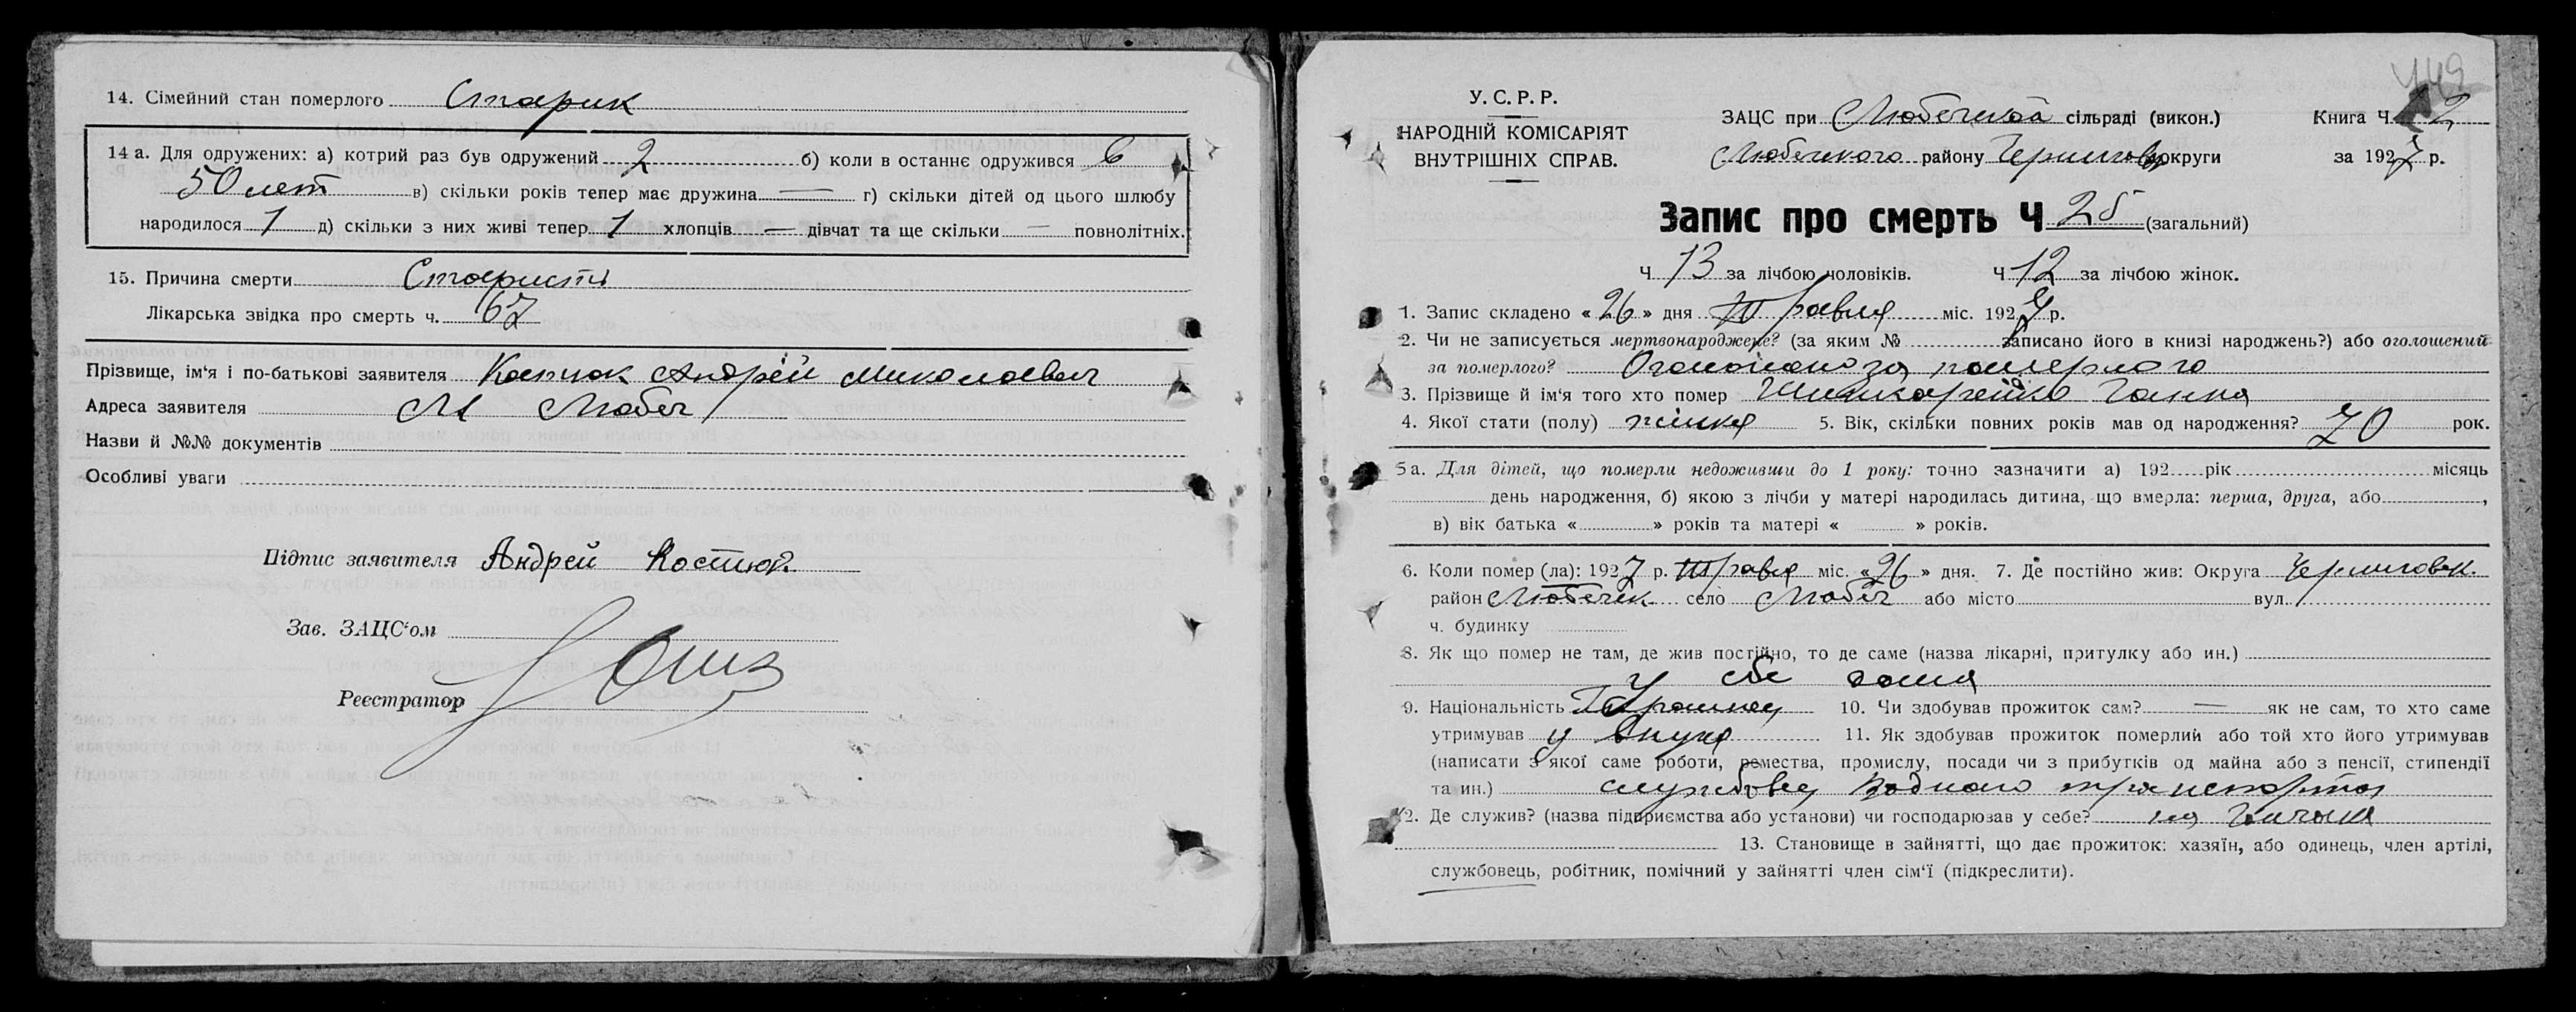 14. Сімейний стан померлого Старик
14 а. Для одружених: а) котрий раз був одружений 2 б) коли в останнє одружився в
50 лет в) скільки років тепер має дружина — г) скільки дітей од цього шлюбу
народилося 1 д) скільки з них живі тепер 1 хлопців — дівчат та ще скільки — повнолітніх.
15. Причина смерти Старисть
Лікарська звідка про смерть ч. 67
Прізвище, ім'я і по-батькові заявителя Андрей Миколаевич
Адреса заявителя М Любеч
Назви й №№ документів
Особливі уваги
Підпис заявителя Андрей Костюк
Зав. ЗАЦС'ом
Реєстратор
442
У. С. Р. Р.
НАРОДНІЙ КОМІСАРІЯТ
ВНУТРІШНІХ СПРАВ.
ЗАЦС при Любечской сільраді (викон.) Книга Ч. 2
Любечского району округи за 1927 р.
Запис про смерть Ч 25 (загальний)
Ч 13 за лічбою чоловіків. Ч 12 за лічбою жінок.
1. Запис складено « 26 » дня Травня міс. 1927 р.
2. Чи не записується мертвонароджене? (за яким № записано його в книзі народжень?) або оголошений
за померлого? за померлого
3. Прізвище й ім'я того хто помер Ганна
4. Якої стати (полу) жінка 5. Вік, скільки повних років мав од народження? 70 рок.
5 а. Для дітей, що померли недоживши до 1 року: точно зазначити а) 192 рік місяць
день народження, б) якою з лічби у матері народилась дитина, що вмерла: перша, друга, або ,
в) вік батька « » років та матері « » років.
6. Коли помер (ла): 1927 р. Травня міс. «26» дня. 7. Де постійно жив: Округа Черниговск.
район Любечск село Любеч або місто вул.
ч. будинку
8. Як що помер не там, де жив постійно, то де саме (назва лікарні, притулку або ин.)
у себе дома
9. Національність 10. Чи здобував прожиток сам? — як не сам, то хто саме
утримував у внука 11. Як здобував прожиток померлий або той хто його утримував
(написати з якої саме роботи, ремества, промислу, посади чи з прибутків од майна або з пенсії, стипендії
та ин.) водного транспорта
12. Де служив? (назва підприємства або установи) чи господарював у себе?
13. Становище в зайнятті, що дає прожиток: хазяїн, або одинець, член артілі,
службовець, робітник, помічний у зайнятті член сім'ї (підкреслити).